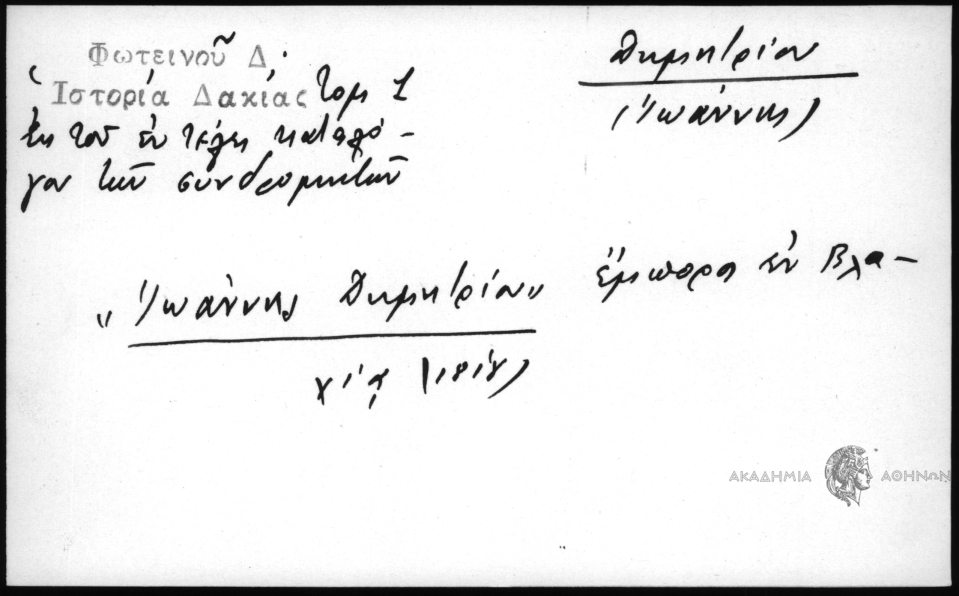 Φωτεινοῦ Δ.
Ἱστορία Δακίας τομ 1
ἐκ τοῦ ἐν τέλει καταλό-
γου τῶν συνδρομητῶν
Δημητρίου
(Ἰωάννης)
"Ἰωάννης Δημητρίου" ἔμπορος ἐν Βλα-
χίᾳ (1818)
ΑΚΑΔΗΜΙΑ ΑΘΗΝΩΝ